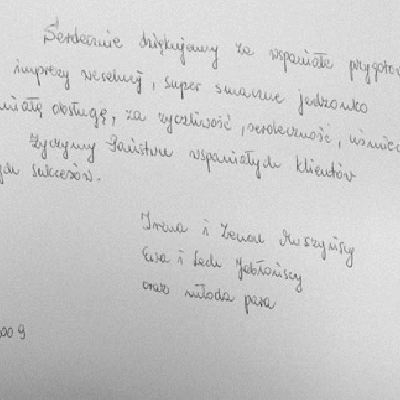 Serdecznie dziękujemy za wspaniałe przygoto
imprezy weselnej, super smaczne jedzonko
niałą obsługę, za życzliwość, serdeczność, uśmiec
Życzymy Państwu wspaniałych klientów
ych sukcesów.
Irena i Zenon Muszyńscy
Ewa i Lech Jabłońscy
oraz młoda para
009